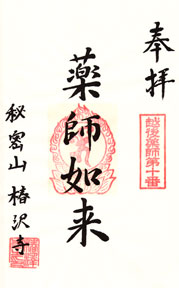 奉拝
越後薬師第十番
薬師如来
秘密山椿沢寺